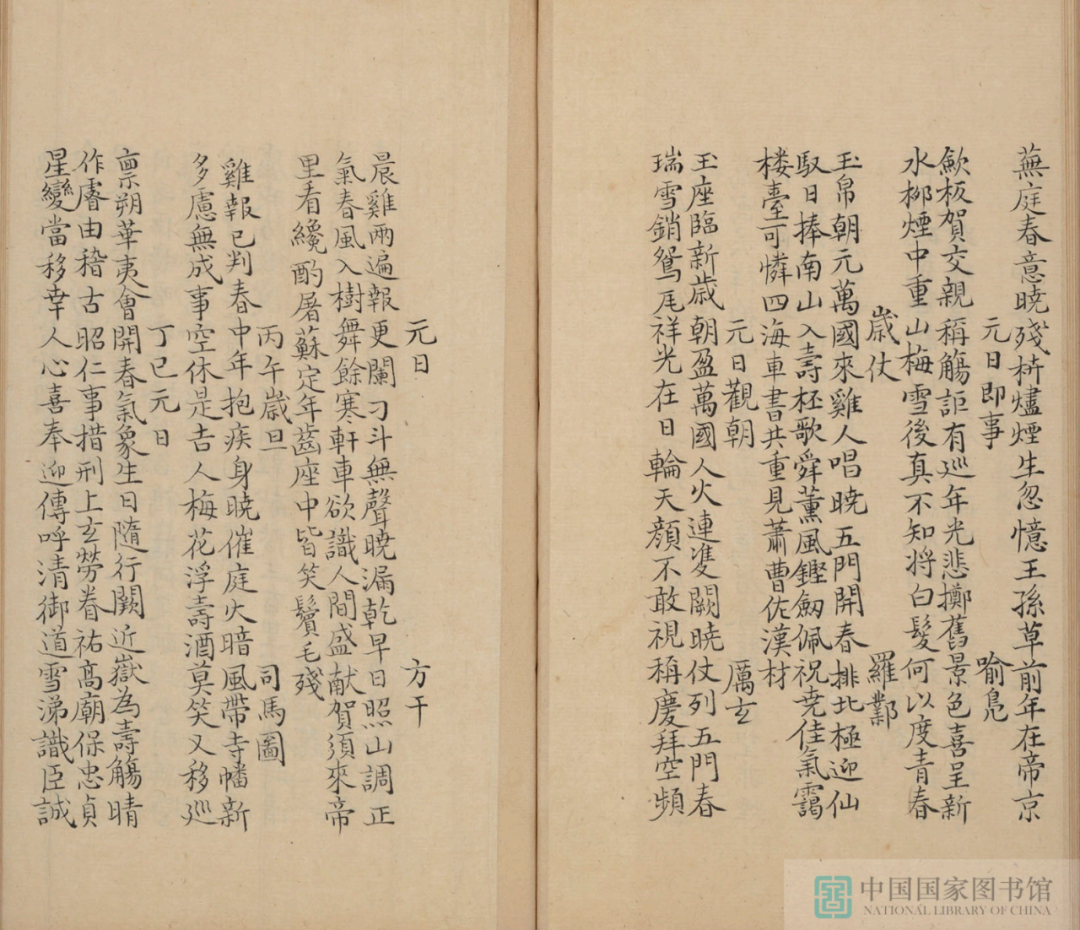 蕪庭春意曉殘枿燼煙生忽憶王孫草前年在帝京
元日即事 喻鳧
歘板賀交親稱觴詎有巡年光悲擲舊景色喜呈新
水柳煙中重山梅雪後真不知將白髮何以度青春
歲仗 羅鄴
玉帛朝元萬國來雞人唱曉五門開春排北極迎仙
馭日捧南山入壽柸歌舜薰風鏗劔佩祝堯佳氣靄
楼臺可憐四海車書共重見蕭曹佐漢材
元日觀朝 厲玄
玉座臨新歲朝盈萬國人火連雙闕曉仗列五門春
瑞雪銷鴛尾祥光在日輪天顏不敢視稱慶拜空頻
元日 方干
晨雞兩遍報更闌刁斗無聲曉漏乾早日照山調正
氣春風入樹舞餘寒軒車欲識人間盛献賀須來帝
里看纔酌屠蘇定年齒座中皆笑鬢毛殘
丙午歲旦 司馬圖
雞報已判春中年抱疾身曉催庭火暗風帶寺幡新
多慮無成事空休是吉人梅花浮壽酒莫笑又移巡
丁巳元日
禀朔華夷會開春氣象生日隨行闕近嶽為壽觴晴
作睿由稽古昭仁事措刑上玄勞眷祐高廟保忠貞
星變當移幸人心喜奉迎傳呼清御道雪涕識臣誠
中国国家图书馆
NATIONAL LIBRARY OF CHINA